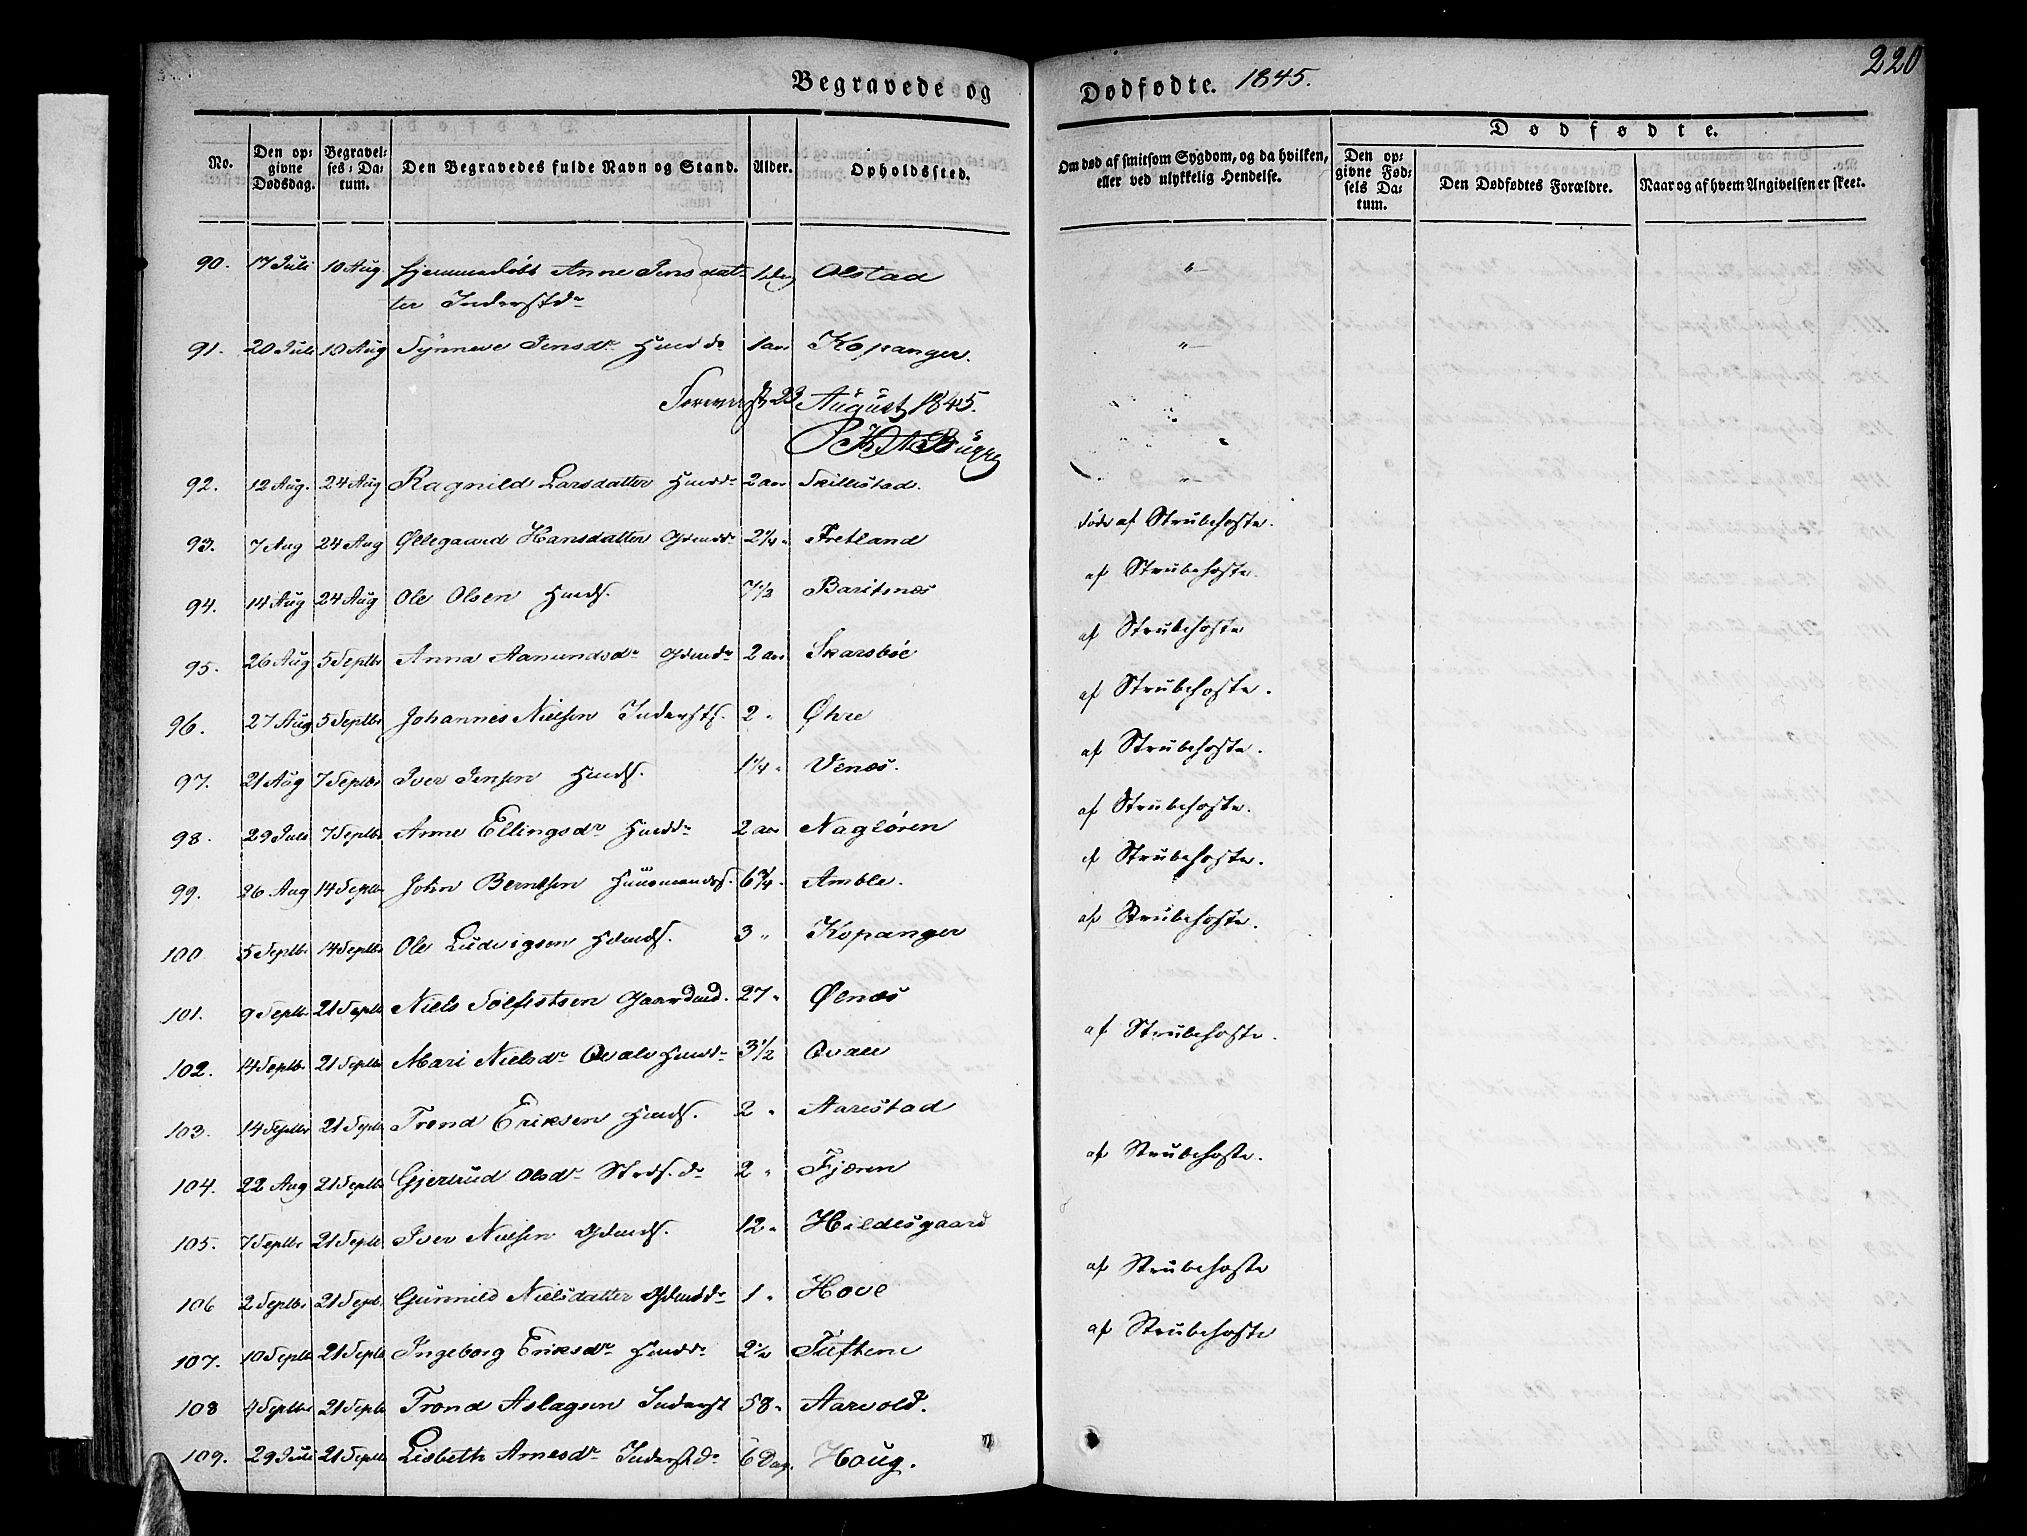 220
Begravede og Dødfødte. 1845.
No.
Den opgivne Dødsdag.
Begravelses-Datum.
Den Begravedes fulde Navn og Stand.
Alder.
Opholdssted.
Om død af smitsom Sygdom, og da hvilken, eller ved ulykkelig Hendelse.
Dødfødte.
Den opgivne Fødsels Datum.
Den Dødfødtes Forældre.
Naar og af hvem Angivelsen er skeet.
90. 17 Juli 10 Aug. Hjemmedøbt Anne Jensdat- 1 Dag Olstad "
ter Inderstdr
91. 20 Juli 10 Aug Synneve Jensdr Hmddr 1 aar Kopanger. "
23 August 1845.
92. 12 Aug. 24 Aug Ragnild Larsdatter Hmddr 2 aar Skillestad. "
93. 7 Aug 24 Aug Øllegaard Hansdatter Gdmdr 2¼ " Fretland døde af Strubehoste.
94. 14 Aug 24 Aug Ole Olsen Hmds. 7½ Baritsnæs af Strubehoste.
95. 26 Aug 5 Septbr Anna Aamundsdr Gdmdr 2 aar Skarsbøe af Strubehoste
96. 27 Aug 5 Septbr Johannes Nielsen Indersts. 2 " Øhre af Strubehoste.
97. 21 Aug 7 Septbr Iver Jensen Hmds. 1¼ " Venæs. af Strubehoste.
98. 29 Juli 7 Septbr Anne Ellingsdr Hmddr 2 aar Nagløren af Strubehoste.
99. 26 Aug 14 Septbr John Berntsen Huusmands. 6¾ " Amble. af Strubehoste.
100. 5 Septbr 14 Septbr Ole Ludvigsen Hdmds. 3 " Kopanger af Strubehoste.
101. 9 Septbr 21 Septbr Niels Sølfestsen Gaardmd. 27 " Ølnæs
102. 14 Septbr 21 Septbr Mari Nielsdr Qvale Hmddr 3½ Qvale af Strubehoste.
103. 14 Septbr 21 Septbr Trond Eriksen Hmds. 2 " Aarestad
104. 22 Aug 21 Septbr Gjertrud Olsdr Strds. dr 2 " Fjæren af Strubehoste.
105. 7 Septbr 21 Septbr Iver Nielsen Gdmds. 12 " Hildesgaard
106 2 Septbr 21 Septbr Gunnild Nielsdatter Gdmddr 1 " Hove af Strubehoste
107. 10 Septbr 21 Septbr Ingeborg Eriksdr Hmddr 2½ Tuftene af Strubehoste
108 4 Septbr 21 Septbr Trond Aslagsen Inderst 58 " Aarvold.
109. 29 Juli 21 Septbr Lisbeth Arnesdr Inderstdr 6 Dag. Houg.